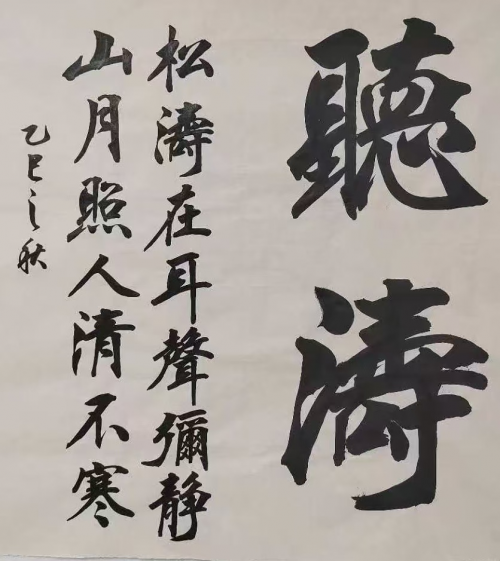 聽濤
松濤在耳聲彌静
山月照人清不寒
乙巳之秋